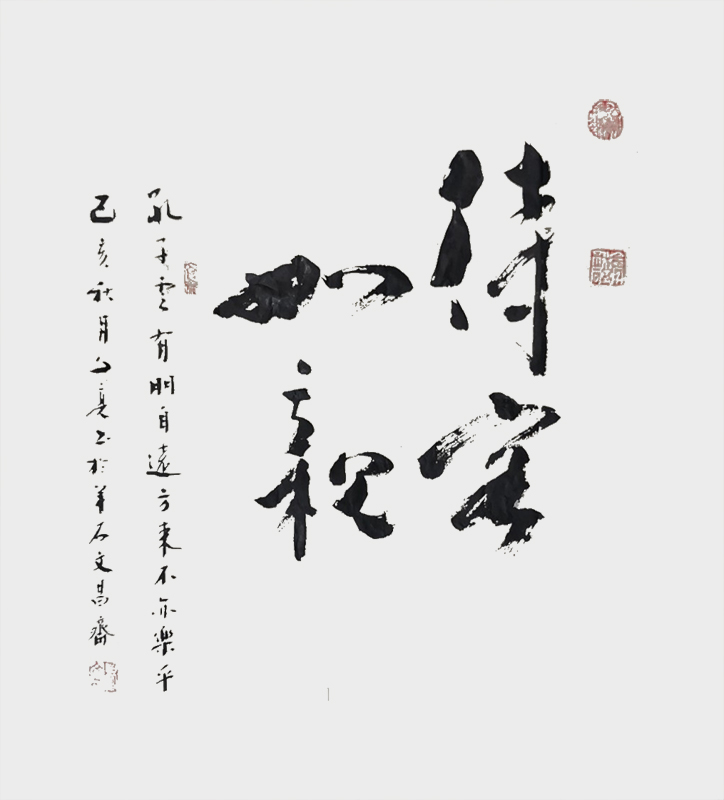 待客
如親
孔子雲有朋自遠方來不亦樂乎
己亥秋月子亮书於羊石文昌齋